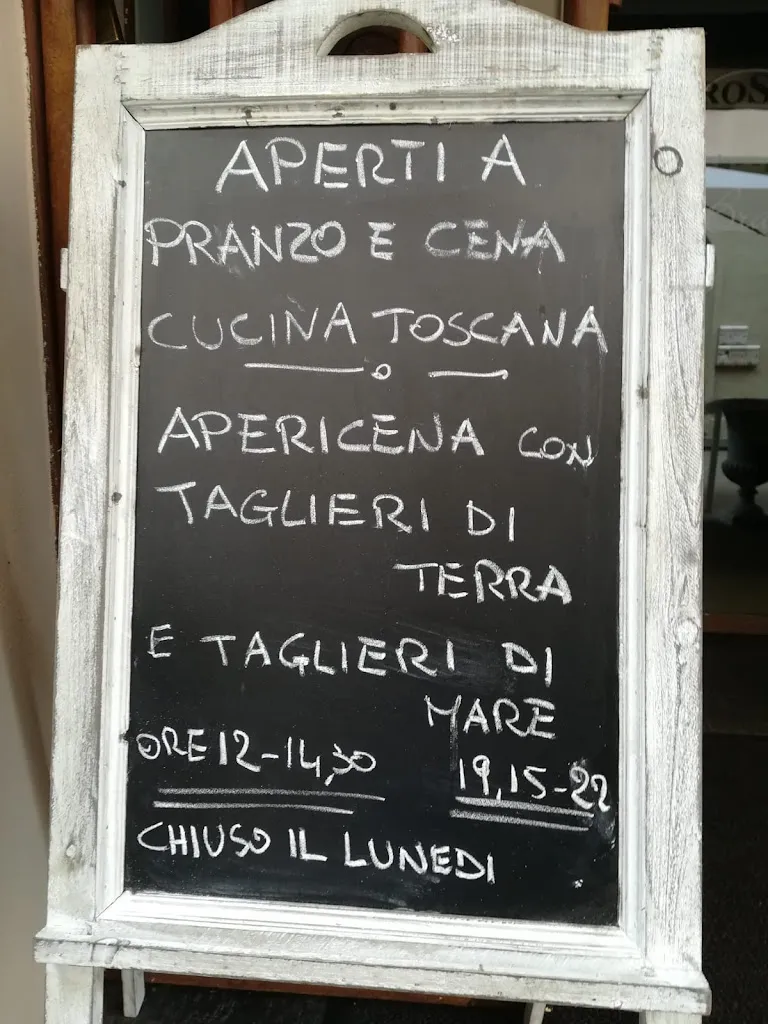 APERTI A
PRANZO E CENA
CUCINA TOSCANA
APERICENA CON
TAGLIERI DI
TERRA
E TAGLIERI DI
MARE
ORE 12-14,30 19,15-22
CHIUSO IL LUNEDI